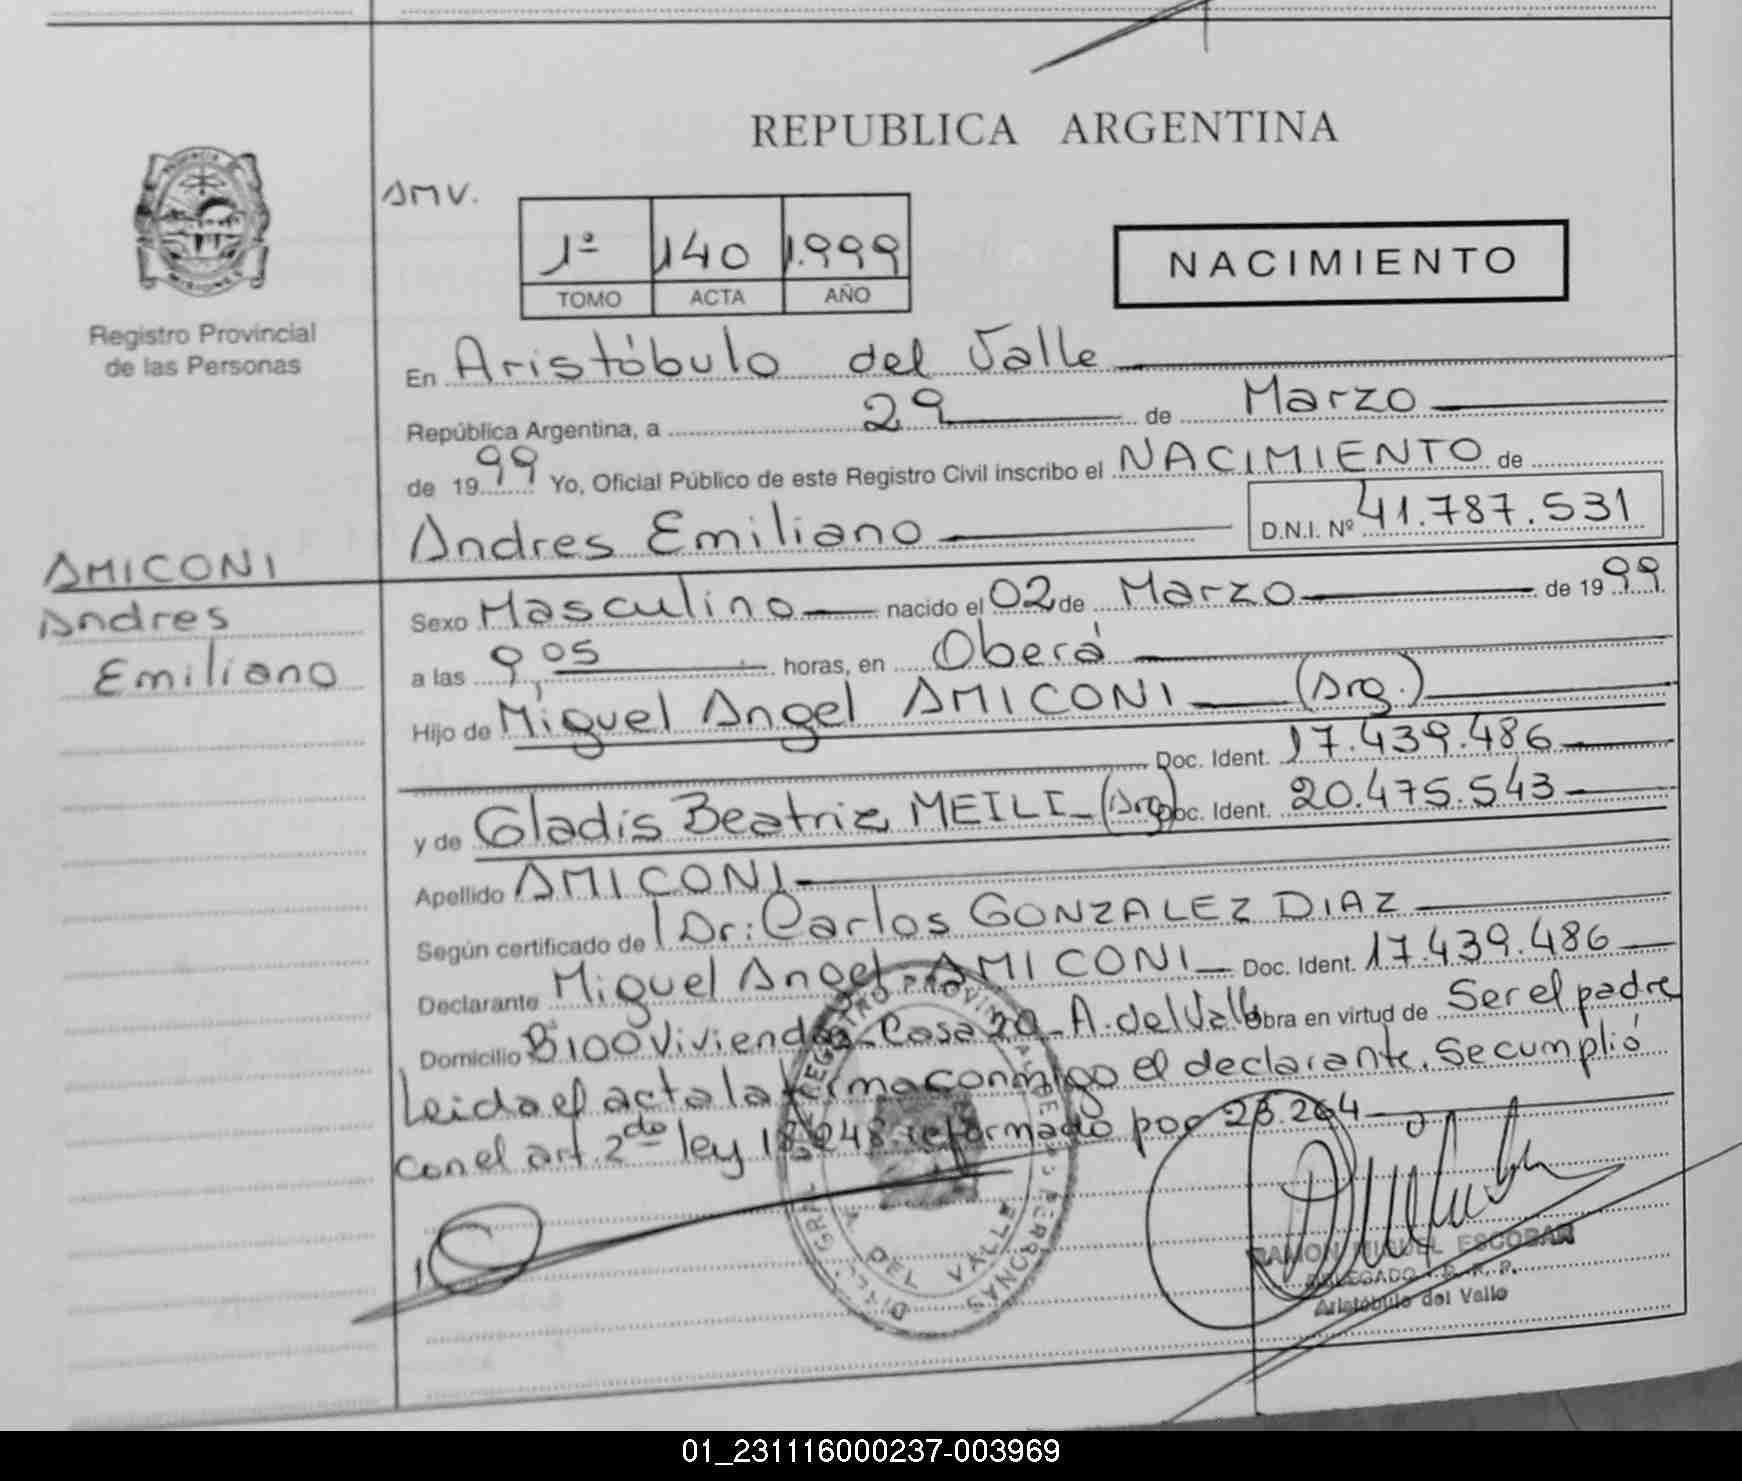 REPUBLICA ARGENTINA
AMV.
1º 140 1.999
TOMO ACTA AÑO
NACIMIENTO
Registro Provincial
de las Personas
En Aristóbulo del Valle
República Argentina, a 29 de Marzo
de 1999 Yo, Oficial Público de este Registro Civil inscribo el NACIMIENTO de
Andres Emiliano D.N.I. Nº 41.787.531
AMICONI
Andres
Emiliano
Sexo Masculino nacido el 02 de Marzo de 1999
a las 9,05 horas, en Oberá
Hijo de Miguel Angel AMICONI (Arg.)
Doc. Ident. 17.439.486
y de Gladis Beatriz MEILI (Arg) Doc. Ident. 20.475.543
Apellido AMICONI
Según certificado de Dr: Carlos GONZALEZ DIAZ
Declarante Miguel Angel AMICONI Doc. Ident. 17.439.486
Domicilio Bº100 Viviendas Casa 20 A. del Valle Obra en virtud de Ser el padre
Leida el acta la firma conmigo el declarante. Se cumplió
con el art. 2do ley 18.248 reformado por 23.264
REGISTRO PROVINCIAL DE LAS PERSONAS
A. DEL VALLE
RAMON MIGUEL ESCOBAR
DELEGADO R. P. P.
Aristóbulo del Valle
01_231116000237-003969